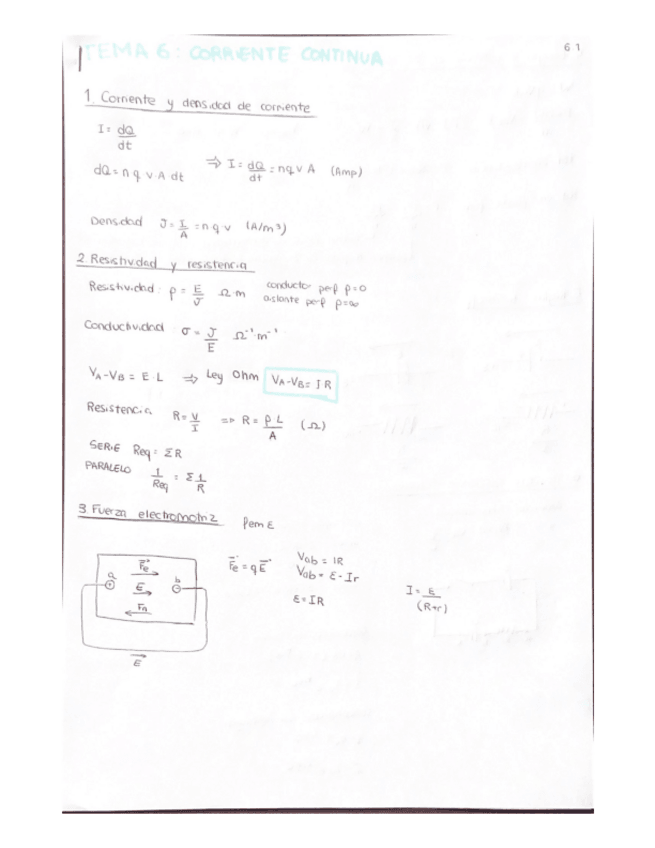 6 1
TEMA 6: CORRIENTE CONTINUA
1. Corriente y densidad de corriente
I = dQ/dt
dQ = n q v A dt ⇒ I = dQ/dt = n q v A (Amp)
Densidad J = I/A = n·q·v (A/m³)
2. Resistividad y resistencia
Resistividad ρ = E/J Ω·m conductor perf ρ=0
aislante perf ρ=∞
Conductividad σ = J/E Ω⁻¹·m⁻¹
VA-VB = E·L ⇒ Ley Ohm VA-VB = I R
Resistencia R = V/I ⇒ R = ρ·L/A (Ω)
SERIE Req = ΣR
PARALELO 1/Req = Σ 1/R
3. Fuerza electromotriz fem ε
a b
Fe
E
Fn
E
Fe = qE
Vab = IR
Vab = ε - Ir
ε = IR
I = ε/(R+r)